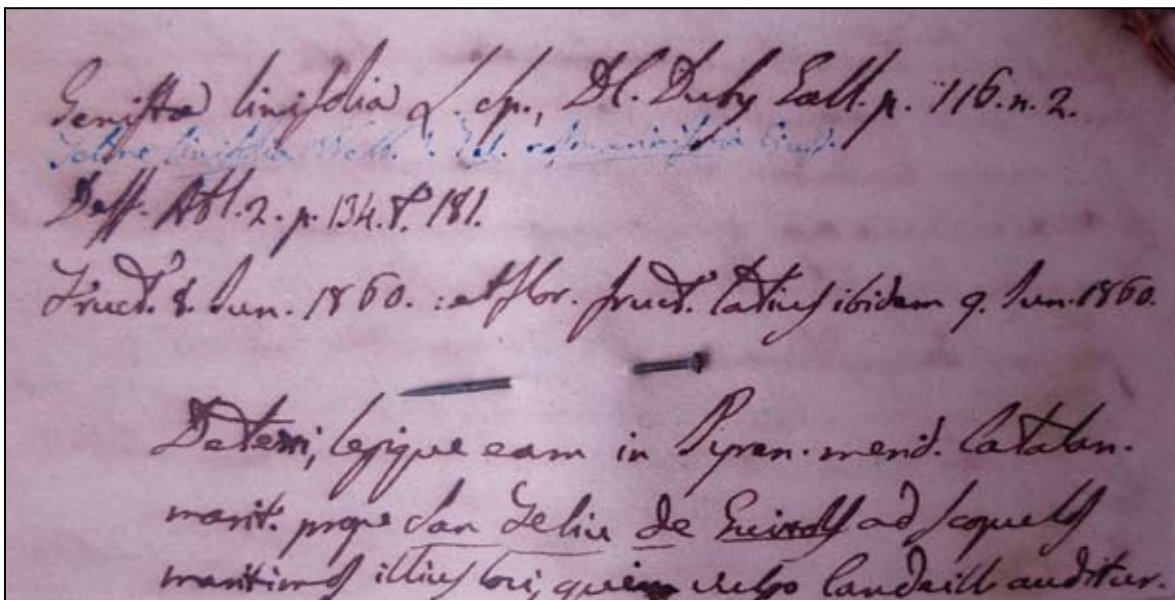 Genista linifolia L. sp., DC. Duby Gall. p. 116. n. 2.
Teline linifolia Webb.
Desf. Atl. 2. p. 134. t. 181.
Fruct. 8. Jun. 1860. : et flor. fruct. latius ibidem 9. Jun. 1860.
Detexi, legique eam in Pyren. merid. Catalan.
marit. prope San Feliu de Guixols ad scopulos
maritimos illius loci, quem vulgo auditur.